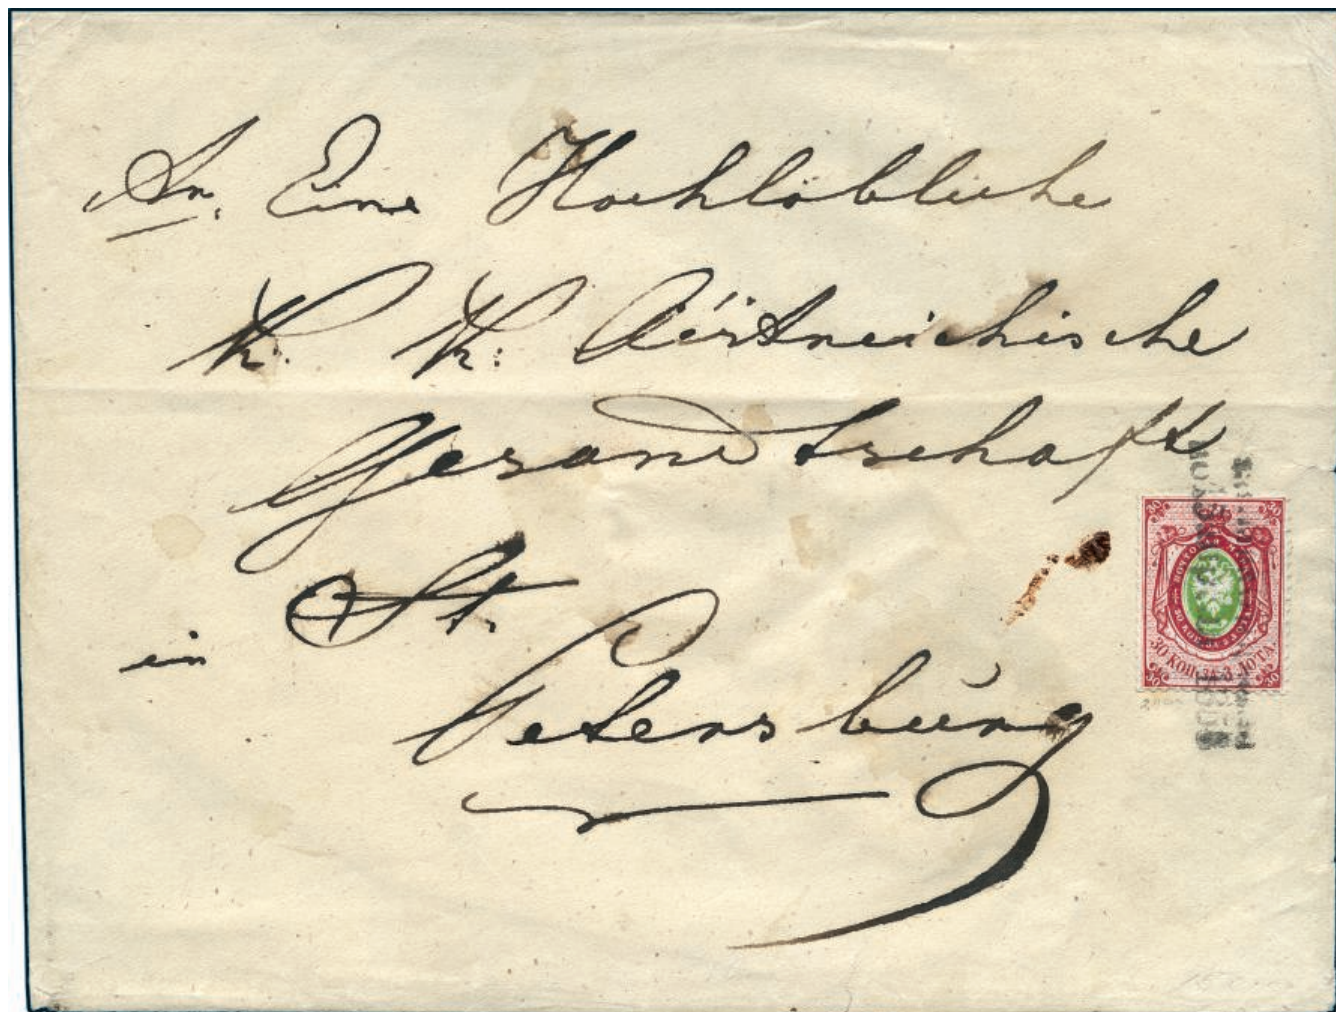 An Eine Hochlöbliche
K. K. Oestreichische
Gesandtschaft
St.
in
Petersburg
30 30
30 КОП. ЗА 3 ЛОТА
30 30